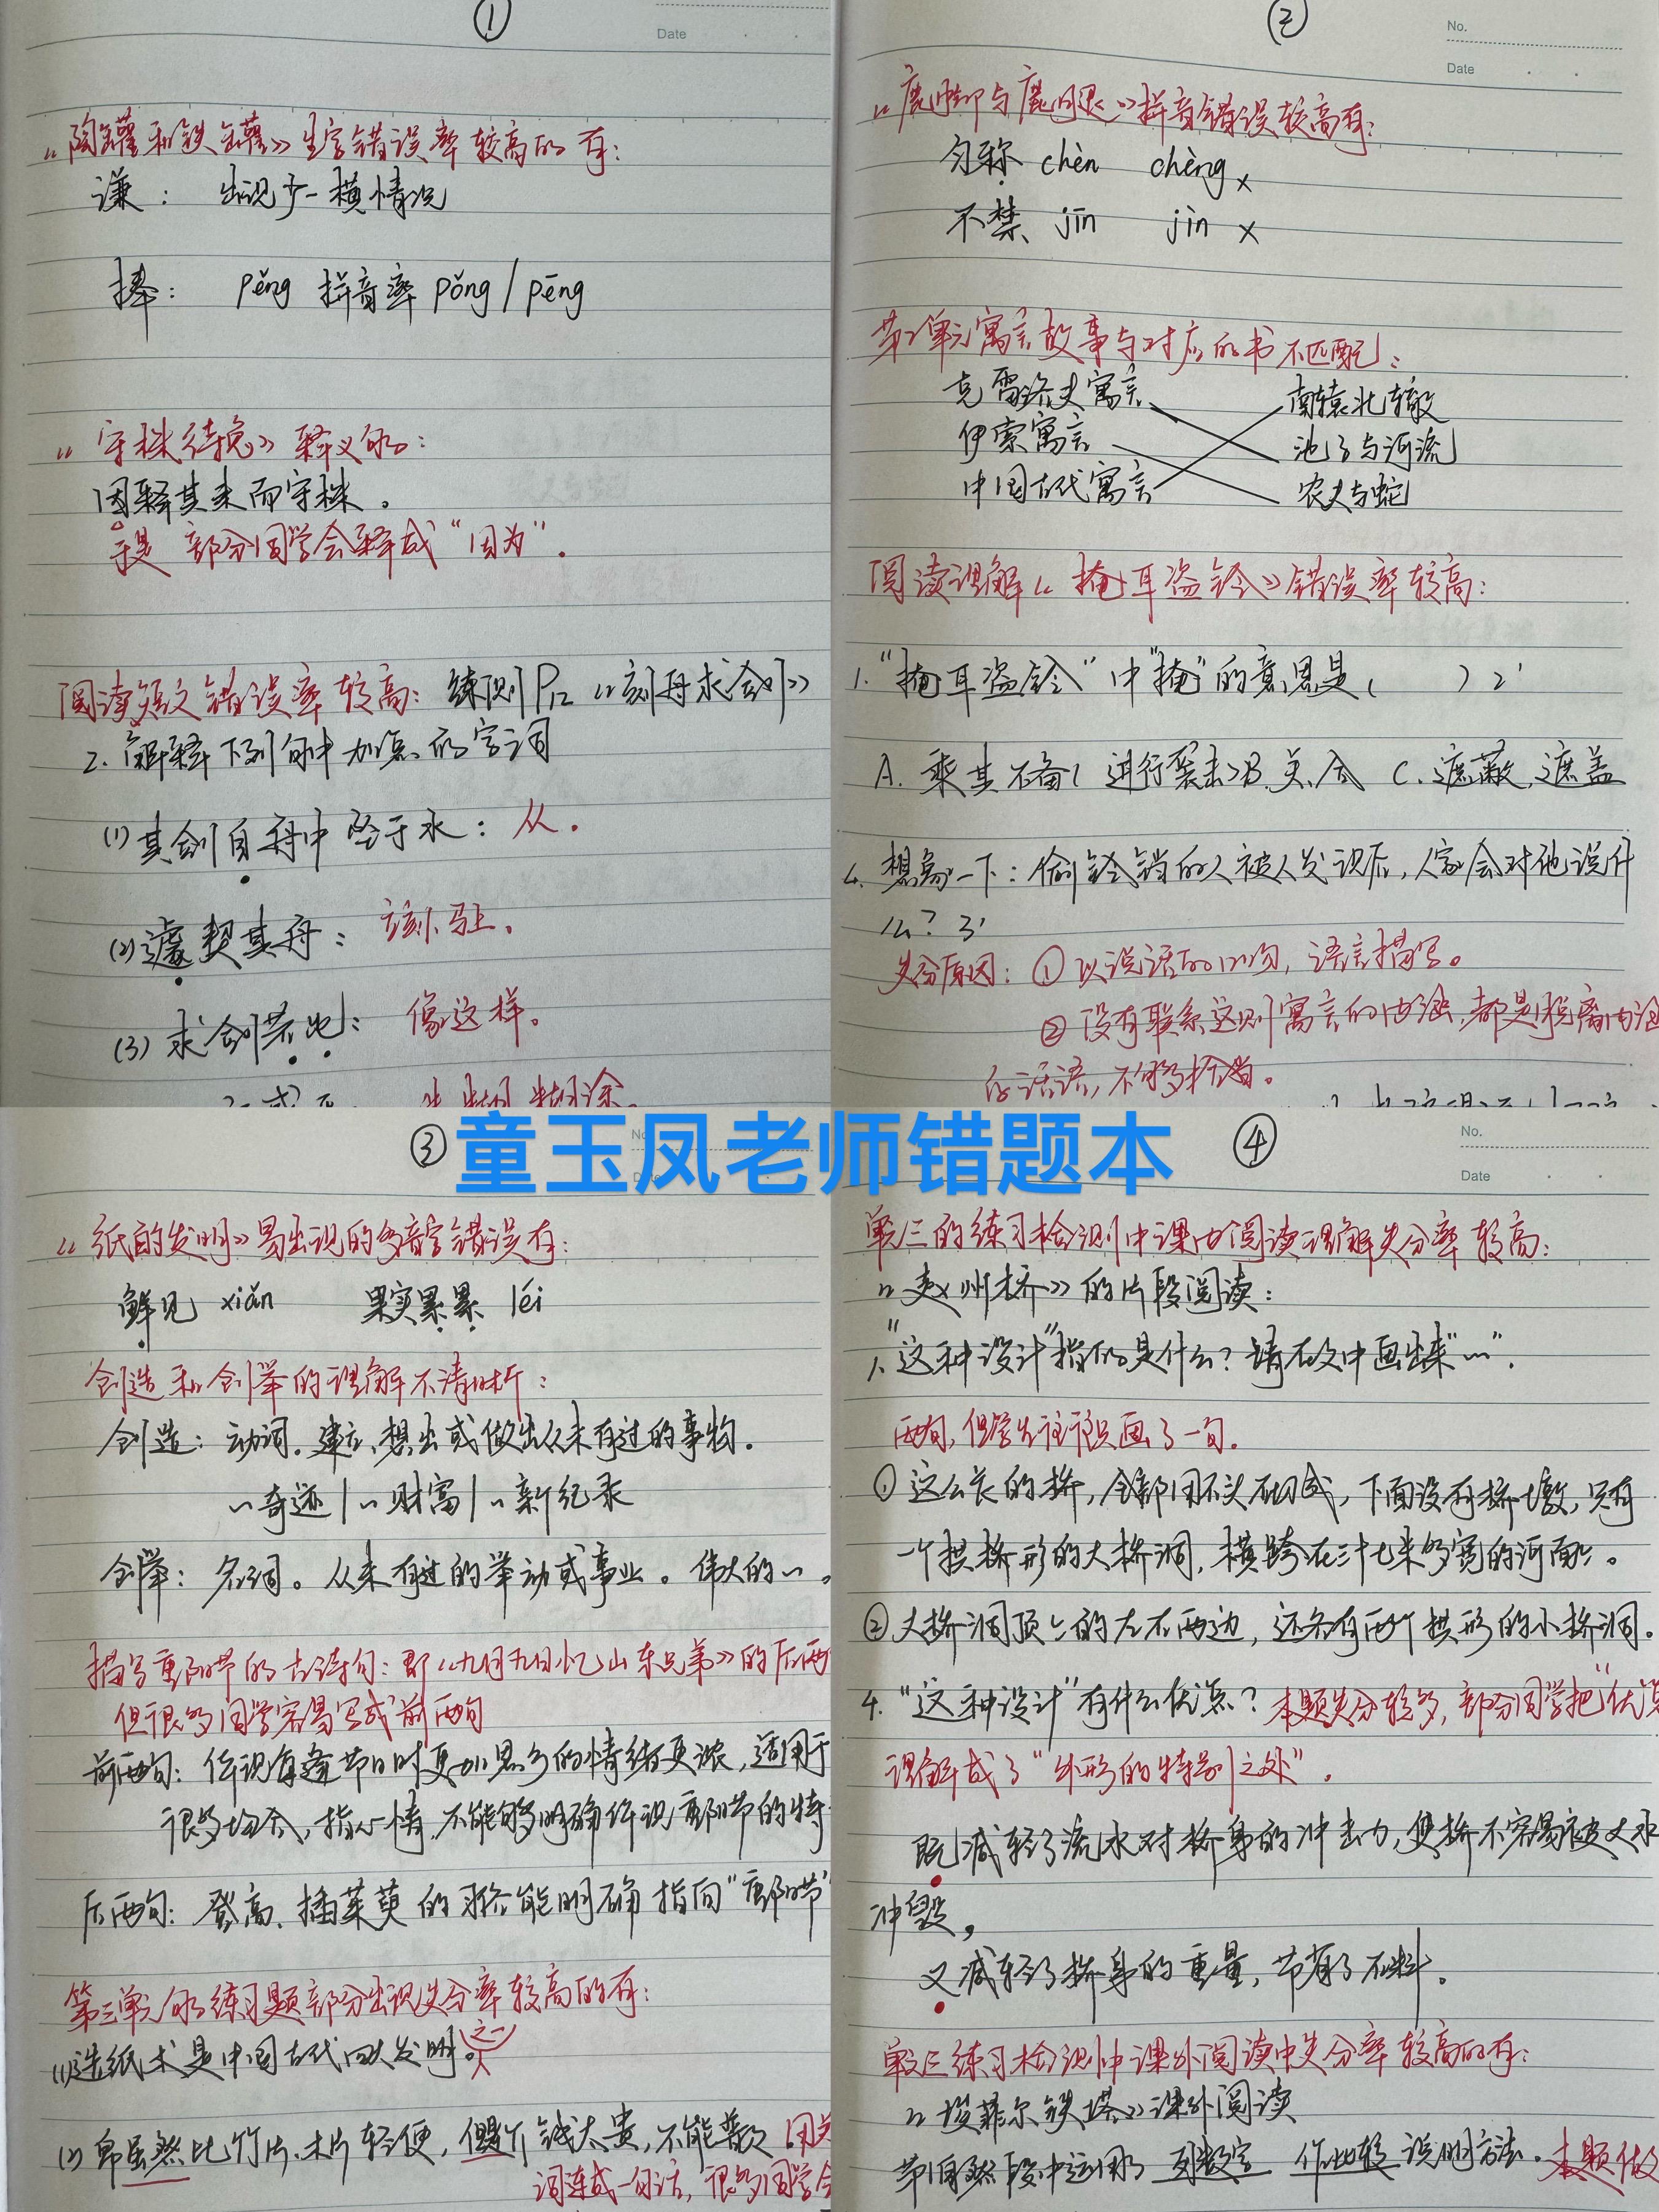 ①
Date
《陶罐和铁罐》生字错误率较高的有：
谦： 出现少一横情况
捧： pěng 拼音率 pǒng/pēng
《守株待兔》释义的：
因释其耒而守株。
于是 部分同学会释成“因为”.
阅读短文错误率较高：练测P12《刻舟求剑》
2. 解释下列句中加点的字词
(1)其剑自舟中坠于水：从.
(2)遽契其舟：立刻、马上.
(3)求剑若此：像这样。
糊涂。
②
No.
Date
《鹿角与鹿腿》拼音错误较高有：
匀称 chèn chèng ×
不禁 jīn jìn ×
第2单元寓言故事与对应的书不匹配：
克雷洛夫寓言 南辕北辙
伊索寓言 池子与河流
中国古代寓言 农夫与蛇
阅读理解《掩耳盗铃》错误率较高：
1.“掩耳盗铃”中“掩”的意思是（ ）2'
A. 乘其不备(进行袭击) B.关、合 C.遮蔽,遮盖
4. 想象一下：偷铃铛的人被人发现后，人家会对他说什
么？3'
失分原因：①以说话的口吻，语言描写。
②没有联系这则寓言的内涵,都是脱离内涵
的话语，不够恰当。
③
童玉凤老师错题本
《纸的发明》易出现的多音字错误有：
鲜见 xiǎn 果实累累 léi
创造和创举的理解不清晰：
创造：动词。建立、想出或做出从未有过的事物.
～奇迹|～财富|～新纪录
创举：名词。从未有过的举动或事业。伟大的～。
描写重阳节的古诗句：即《九月九日忆山东兄弟》的后两
但很多同学容易写成前两句
前两句：体现每逢节日时更加思乡的情绪更浓，适用于
很多场合，指心情.不能够明确体现重阳节的特
后两句：登高、插茱萸的习俗能明确指向“重阳节”
第三单元的练习题部分出现失分率较高的有：
(1)造纸术是中国古代四大发明之一。
(2)帛虽然比竹片、木片轻便，但是价钱太贵，不能普及 用关
词连成一句话，很多同学会
④
No.
Date
单元三的练习检测中课内阅读理解失分率较高：
《赵州桥》的片段阅读：
1.“这种设计”指的是什么？请在文中画出来“～”.
两句，但学生往往只画了一句.
①这么长的桥，全部用石头砌成，下面没有桥墩，只有
一个拱桥形的大桥洞，横跨在三十七米多宽的河面上。
②大桥洞顶上的左右两边，还各有两个拱形的小桥洞.
4.“这种设计”有什么优点？本题失分较多，部分同学把“优点
理解成了“外形的特别之处”.
既减轻了流水对桥身的冲击力，使桥不容易被大水
冲毁，
又减轻了桥身的重量，节省了石料.
单元三练习检测中课外阅读中失分率较高的有：
《埃菲尔铁塔》课外阅读
节自然段中运用了列数字 作比较 说明方法.本题做